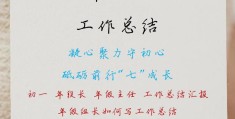 工作总结
凝心聚力守初心
砥砺前行“七”成长
初一 年级长 年级主任 工作总结汇报
年级组长如何写工作总结